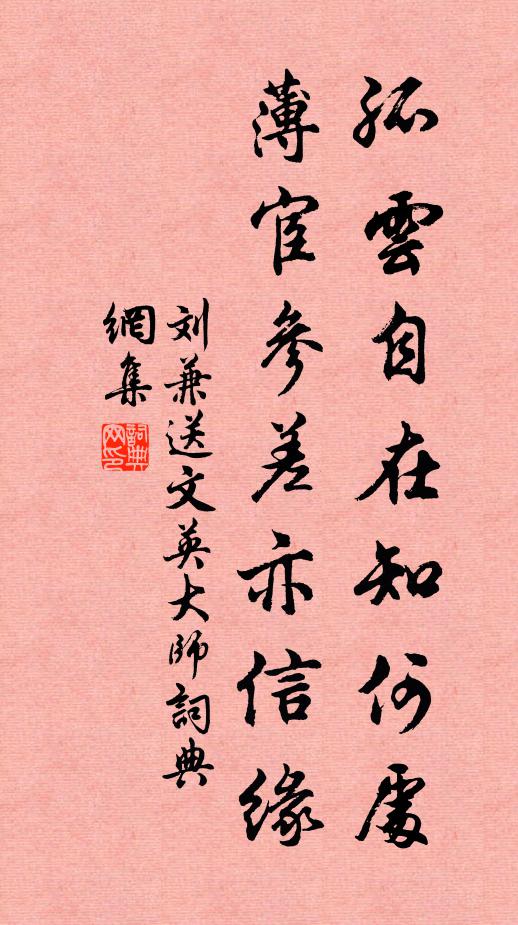 孤雲自在知何處
薄宦參差亦信緣
刘兼送文英大師詞典
網集
詞典
网印